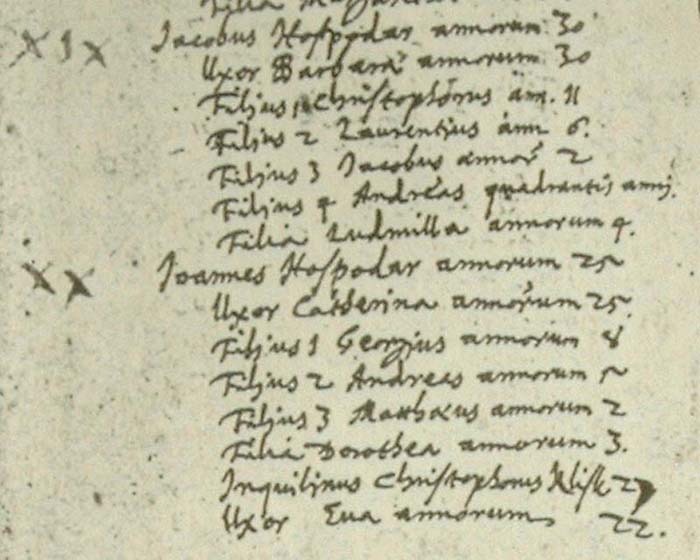 Filia
XIX Jacobus Hospodar annorum 30
Uxor Barbara annorum 30
Filius 1 Christophorus ann. 11
Filius 2 Laurentius ann 6.
Filius 3 Jacobus annor 2
Filius 4 Andreas quadrantis anni.
Filia Ludmilla annorum 4.
XX Joannes Hospodar annorum 25
Uxor Catherina annorum 25.
Filius 1 Georgius annorum 8
Filius 2 Andreas annorum 5
Filius 3 Matthaeus annorum 2
Filia Dorothea annorum 3.
Inquilinus Christophorus 27
Uxor Eva annorum 22.